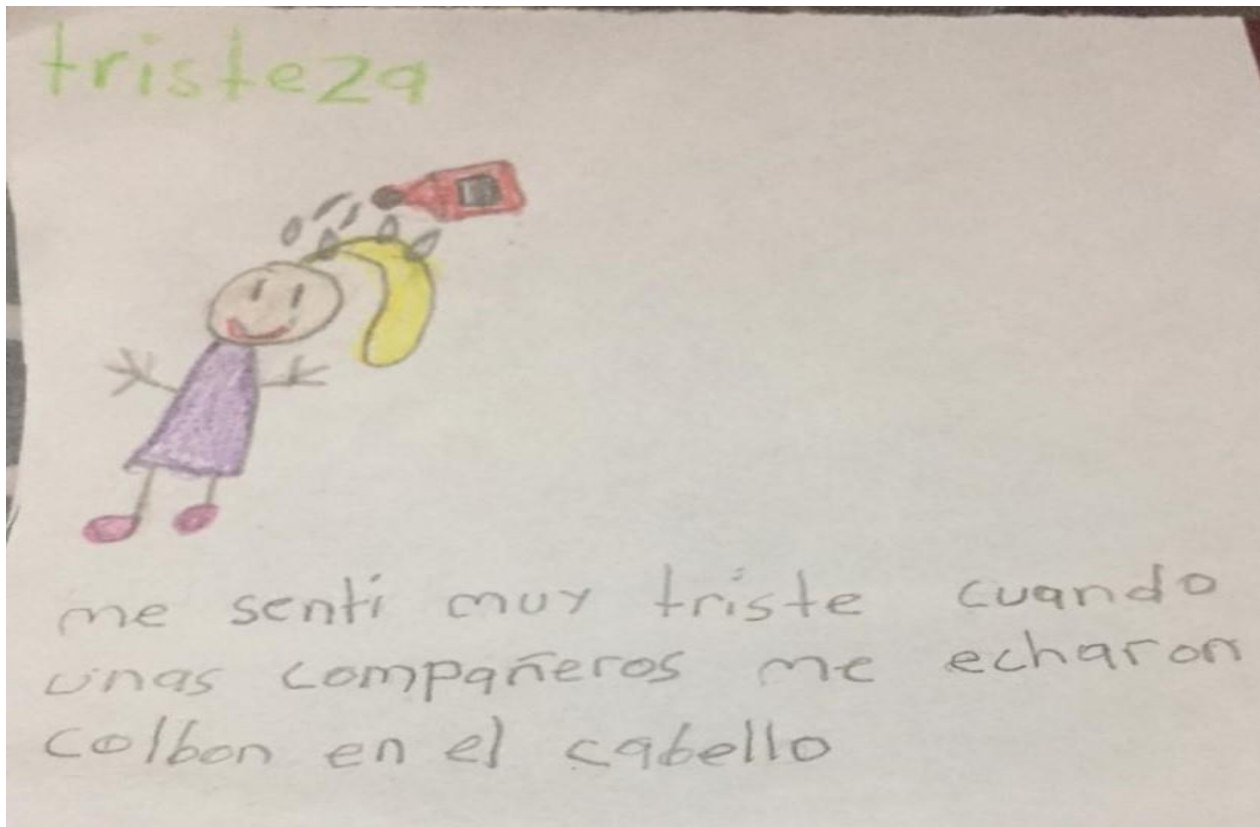 tristeza
me sentí muy triste cuando
unas compañeros me echaron
colbon en el cabello